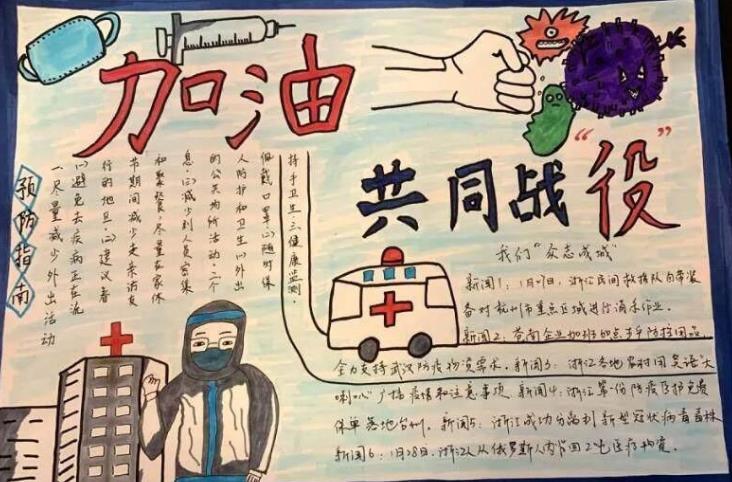 加油
共同战“役”
预防指南
一尽量减少外出活动
(1)避免去疾病正在流
行的地区.(2)建议春
节期间减少走亲访友
和聚餐,尽量在家休
息.(3)减少到人员密集
的公共场所活动.二个
人防护和卫生(1)外出
佩戴口罩(2)随时保
持手卫生三、健康监测.
我们“众志成城”
新闻1:1月27日,浙江民间救援队自带装
备对杭州市重点区域进行消杀作业.
新闻2:苍南企业加班加点生产防护用品,
全力支持武汉防疫物资需求.新闻3:浙江各地农村用 大
喇叭广播疫情和注意事项.新闻4:浙江 份防疫 免费
保单落地台州.新闻5:浙江成功分离到新型冠状病毒毒株
新闻6:1月28日,浙江人从俄罗斯人肉背回 医疗物资.